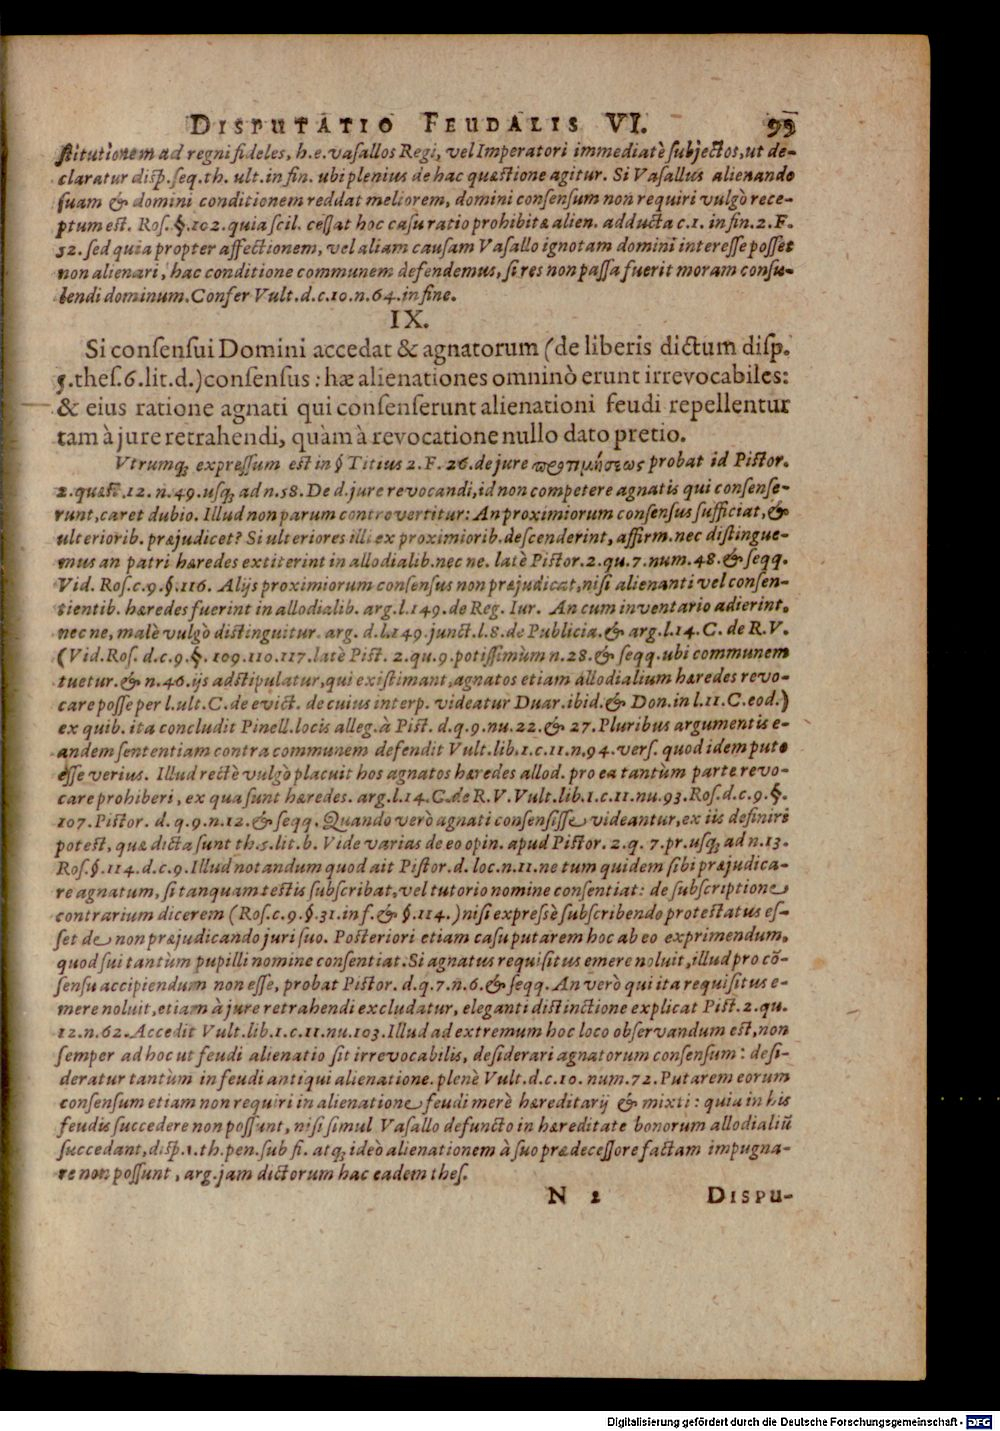 DISPUTATIO FEUDALIS VI. 99
stitutionem ad regni fideles, h.e. vasallos Regi, vel Imperatori immediatè subjectos, ut de-
claratur disp. seq. th. ult. in fin. ubi plenius de hac quæstione agitur. Si Vasallus alienando
suam & domini conditionem reddat meliorem, domini consensum non requiri vulgò rece-
ptum est. Ros. §. 102. quia scil. cessat hoc casu ratio prohibitæ alien. adducta c. 1. in fin. 2. F.
52. sed quia propter affectionem, vel aliam causam Vasallo ignotam domini interesse posset
non alienari, hac conditione communem defendemus, si res non passa fuerit moram consu-
lendi dominum. Confer Vult. d. c. 10. n. 64. in fine.
IX.
Si consensui Domini accedat & agnatorum (de liberis dictum disp.
5. thes. 6. lit. d.) consensus : hæ alienationes omninò erunt irrevocabiles:
& eius ratione agnati qui consenserunt alienationi feudi repellentur
tam à jure retrahendi, quàm à revocatione nullo dato pretio.
Vtrumq; expressum est in § Titius 2. F. 26. de jure προτιμήσεως probat id Pistor.
2. quæst. 12. n. 49. usq; ad n. 58. De d. jure revocandi, id non competere agnatis qui consense-
runt, caret dubio. Illud non parum controvertitur: An proximiorum consensus sufficiat, &
ulteriorib. præjudicet? Si ulteriores illi ex proximiorib. descenderint, affirm. nec distingue-
mus an patri hæredes extiterint in allodialib. nec ne. latè Pistor. 2. qu. 7. num. 48. & seqq.
Vid. Ros. c. 9. §. 116. Alijs proximiorum consensus non præjudicat, nisi alienanti vel consen-
tientib. hæredes fuerint in allodialib. arg. l. 149. de Reg. Iur. An cum inventario adierint,
nec ne, malè vulgò distinguitur. arg. d. l. 149. junct. l. 8. de Publicia. & arg. l. 14. C. de R. V.
(Vid. Ros. d. c. 9. §. 109. 110. 117. latè Pist. 2. qu. 9. potissimùm n. 28. & seqq. ubi communem
tuetur. & n. 46. ijs adstipulatur, qui existimant, agnatos etiam allodialium hæredes revo-
care posse per l. ult. C. de evict. de cuius interp. videatur Duar. ibid. & Don. in l. 11. C. eod.)
ex quib. ita concludit Pinell. locis alleg. à Pist. d. q. 9. nu. 22. & 27. Pluribus argumentis e-
andem sententiam contra communem defendit Vult. lib. 1. c. 11. n. 94. vers. quod idem puto
esse verius. Illud rectè vulgò placuit hos agnatos hæredes allod. pro ea tantùm parte revo-
care prohiberi, ex qua sunt hæredes. arg. l. 14. C. de R. V. Vult. lib. 1. c. 11. nu. 93. Ros. d. c. 9. §.
107. Pistor. d. q. 9. n. 12. & seqq. Quando verò agnati consensisse videantur, ex iis definiri
potest, quæ dicta sunt th. 5. lit. b. Vide varias de eo opin. apud Pistor. 2. q. 7. pr. usq; ad n. 13.
Ros. §. 114. d. c. 9. Illud notandum quod ait Pistor. d. loc. n. 11. ne tum quidem sibi præjudica-
re agnatum, si tanquam testis subscribat, vel tutorio nomine consentiat: de subscriptione
contrarium dicerem (Ros. c. 9. §. 31. in f. & §. 114.) nisi expressè subscribendo protestatus es-
set de non præjudicando juri suo. Posteriori etiam casu putarem hoc ab eo exprimendum,
quod sui tantùm pupilli nomine consentiat. Si agnatus requisitus emere noluit, illud pro cõ-
sensu accipiendum non esse, probat Pistor. d. q. 7. n. 6. & seqq. An verò qui ita requisitus e-
mere noluit, etiam à jure retrahendi excludatur, eleganti distinctione explicat Pist. 2. qu.
12. n. 62. Accedit Vult. lib. 1. c. 11. nu. 103. Illud ad extremum hoc loco observandum est, non
semper ad hoc ut feudi alienatio sit irrevocabilis, desiderari agnatorum consensum: desi-
deratur tantùm in feudi antiqui alienatione. plenè Vult. d. c. 10. num. 72. Putarem eorum
consensum etiam non requiri in alienatione feudi merè hæreditarij & mixti : quia in his
feudis succedere non possunt, nisi simul Vasallo defuncto in hæreditate bonorum allodialiũ
succedant, disp. 1. th. pen. sub fi. atq; ideò alienationem à suo prædecessore factam impugna-
re non possunt, arg. jam dictorum hac eadem thes.
N 2 DISPU-
Digitalisierung gefördert durch die Deutsche Forschungsgemeinschaft - DFG